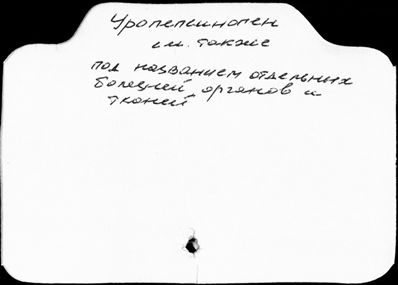 Уропепсиноген
см. также
под названием отдельных
болезней, органов и
тканей